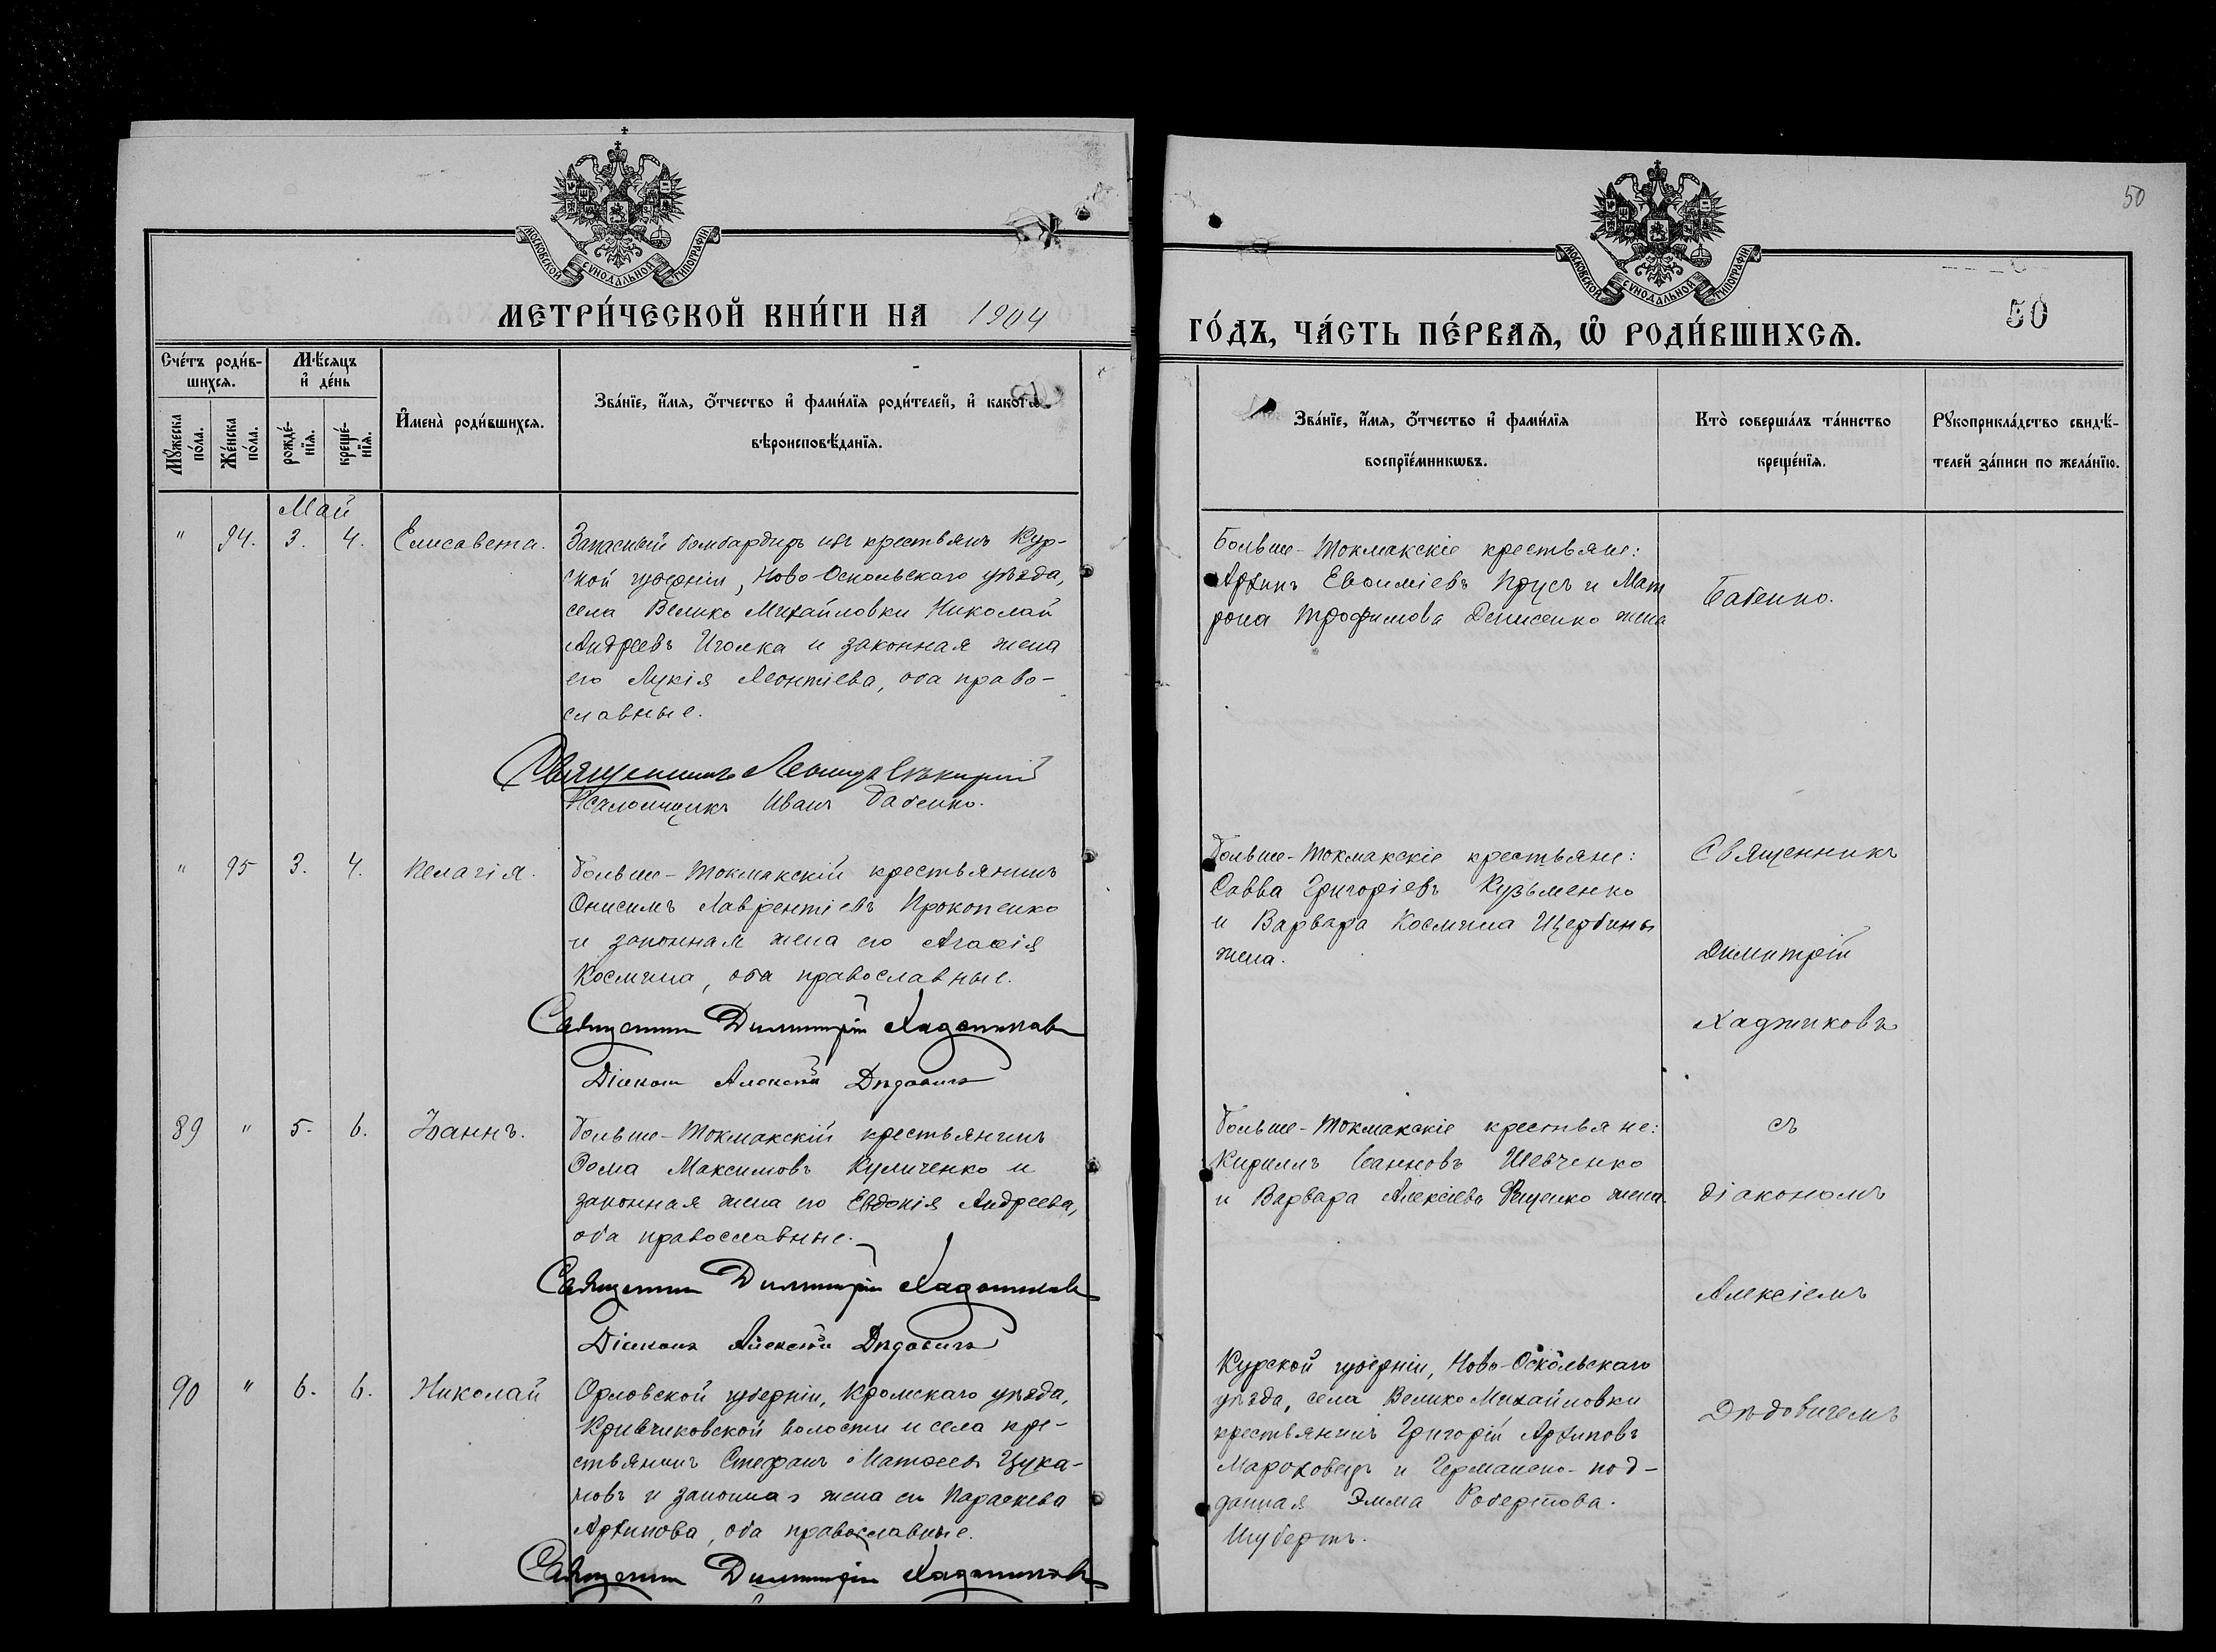 50
МОСКОВСКОЙ СУНОДАЛЬНОЙ ТИПОГРАФІИ
МЕТРИ́ЧЕСКОЙ КНИ́ГИ НА 1904
Сче́тъ роди́в-
шихся.
Мѣ́сяцъ
и҆ де́нь
Мꙋ́жеска по́ла.
Же́нска по́ла.
рожде́-
нїя.
креще́-
нїя.
И҆мена̀ роди́вшихся.
Зва́нїе, и҆́мя, ѻ҆́тчество и҆ фами́лїя роди́телей, и҆ како́гѡ
вѣроисповѣ́данїя.
Май
" 94. 3. 4. Елисавета.
Запасный бомбардиръ изъ крестьянъ Кур-
ской губерніи, Ново-Оскольскаго уѣзда,
села Велико Михайловки Николай
Андреевъ Иголка и законная жена
его Лукія Леонтіева, оба право-
славные.
Священникъ Леонидъ
Псаломщикъ Иванъ Бабенко.
" 95 3. 4. Пелагія.
Больше-Токмакскій крестьянинъ
Онисимъ Лаврентіевъ Прокопенко
и законная жена его Агаѳія
Космина, оба православные.
Священникъ Димитрій Хаджиковъ
Діаконъ Алексій Дѣдовичъ
89 " 5. 6. Іоаннъ.
Больше-Токмакскій крестьянинъ
Ѳома Максимовъ Куличенко и
законная жена его Евдокія Андреева,
оба православные.
Священникъ Димитрій Хаджиковъ
Діаконъ Алексій Дѣдовичъ
90 " 6. 6. Николай
Орловской губерніи, Кромскаго уѣзда,
Кривчиковской волости и села кре-
стьянинъ Стефанъ Матѳеевъ Цука-
новъ и законная жена его Параскева
Архипова, оба православные.
Священникъ Димитрій Хаджиковъ
МОСКОВСКОЙ СУНОДАЛЬНОЙ ТИПОГРАФІИ
ГО́ДЪ, ЧА́СТЬ ПЕ́РВАЯ, Ѽ РОДИ́ВШИХСЯ.
50
Зва́нїе, и҆́мя, ѻ҆́тчество и҆ фами́лїя
воспрїе́мникѡвъ.
Кто̀ соверша́лъ та́инство
креще́нїя.
Рꙋкоприкла́дство свидѣ́-
телей за́писи по жела́нїю.
Больше-Токмакскіе крестьяне:
Архипъ Евѳиміевъ Прусъ и Мат
рона Трофимова Денисенко жена
Бабенко.
Больше-Токмакскіе крестьяне:
Савва Григоріевъ Кузьменко
и Варвара Космина Щербины
жена.
Священникъ
Димитрій
Хаджиковъ
Больше-Токмакскіе крестьяне:
Кириллъ Іоанновъ Шевченко
и Варвара Алексіева жена.
съ
діакономъ
Алексіемъ
Курской губерніи, Ново-Оскольскаго
уѣзда, села Велико Михайловки
крестьянинъ Григорій Архиповъ
и Германско-под-
данная Эмма Робертова
Шубертъ.
Дѣдовичемъ